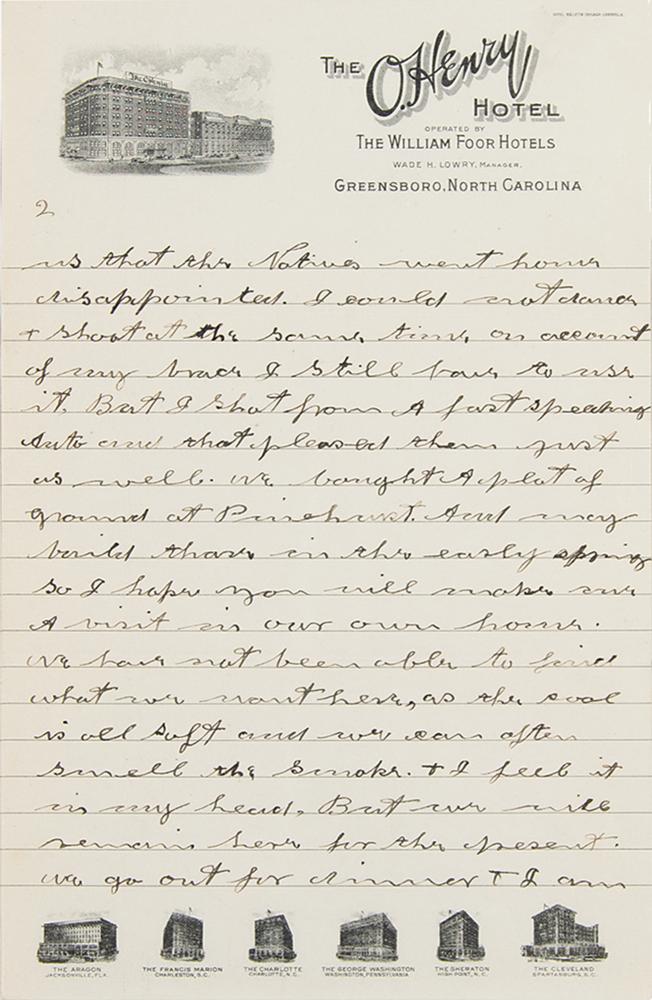 The O.Henry
THE O.Henry HOTEL
OPERATED BY
THE WILLIAM FOOR HOTELS
WADE H. LOWRY, MANAGER.
GREENSBORO, NORTH CAROLINA
2
us that the Natives went home
disappointed. I could not dance
+ shoot at the same time on account
of my brace I still have to use
it. But I shot from A fast speeding
Auto and that pleased them just
as well. we bought A plot of
ground at Pinehurst. And may
build there in the early spring
so I hope you will make me
A visit in our own home.
we have not been able to find
what we want here, as the coal
is all soft and we can often
smell the smoke. + I feel it
in my head, But we will
remain here for the present.
we go out for dinner + I am
THE ARAGON
JACKSONVILLE, FLA.
THE FRANCIS MARION
CHARLESTON, S.C.
THE CHARLOTTE
CHARLOTTE, N.C.
THE GEORGE WASHINGTON
WASHINGTON, PENNSYLVANIA
THE SHERATON
HIGH POINT, N.C.
THE CLEVELAND
SPARTANBURG, S.C.